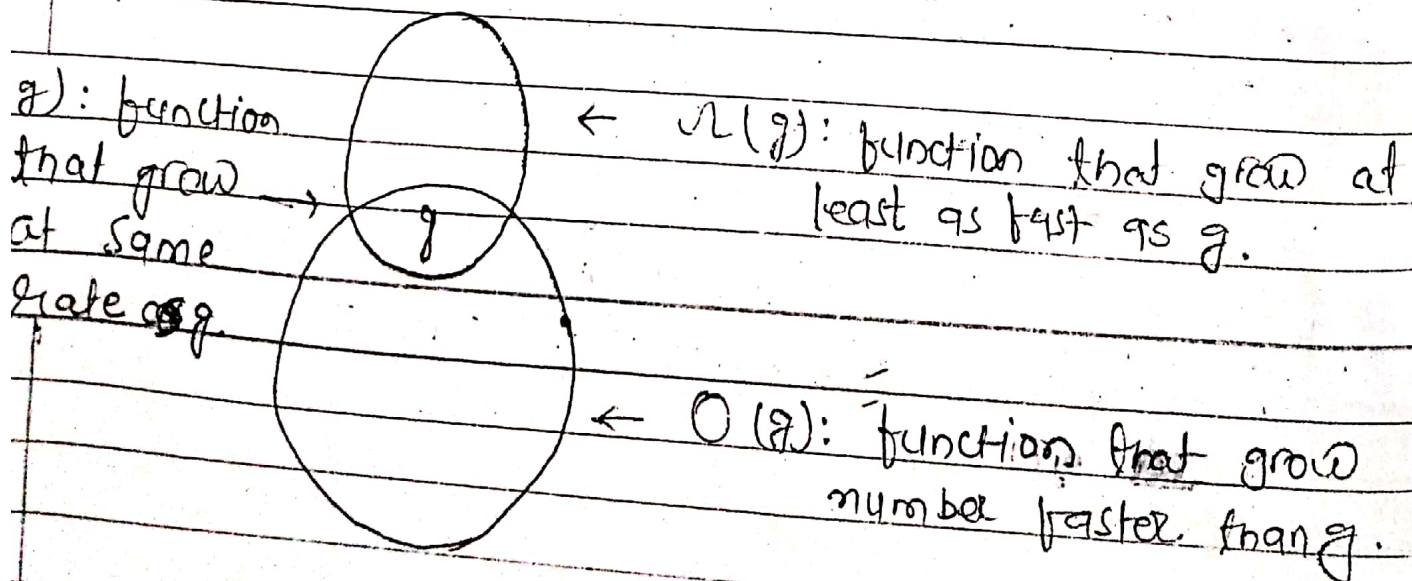 g): function
that grow →
at same
rate as g.
g
← Ω(g): function that grow at
least as fast as g.
← O(g): function that grow
number faster than g.